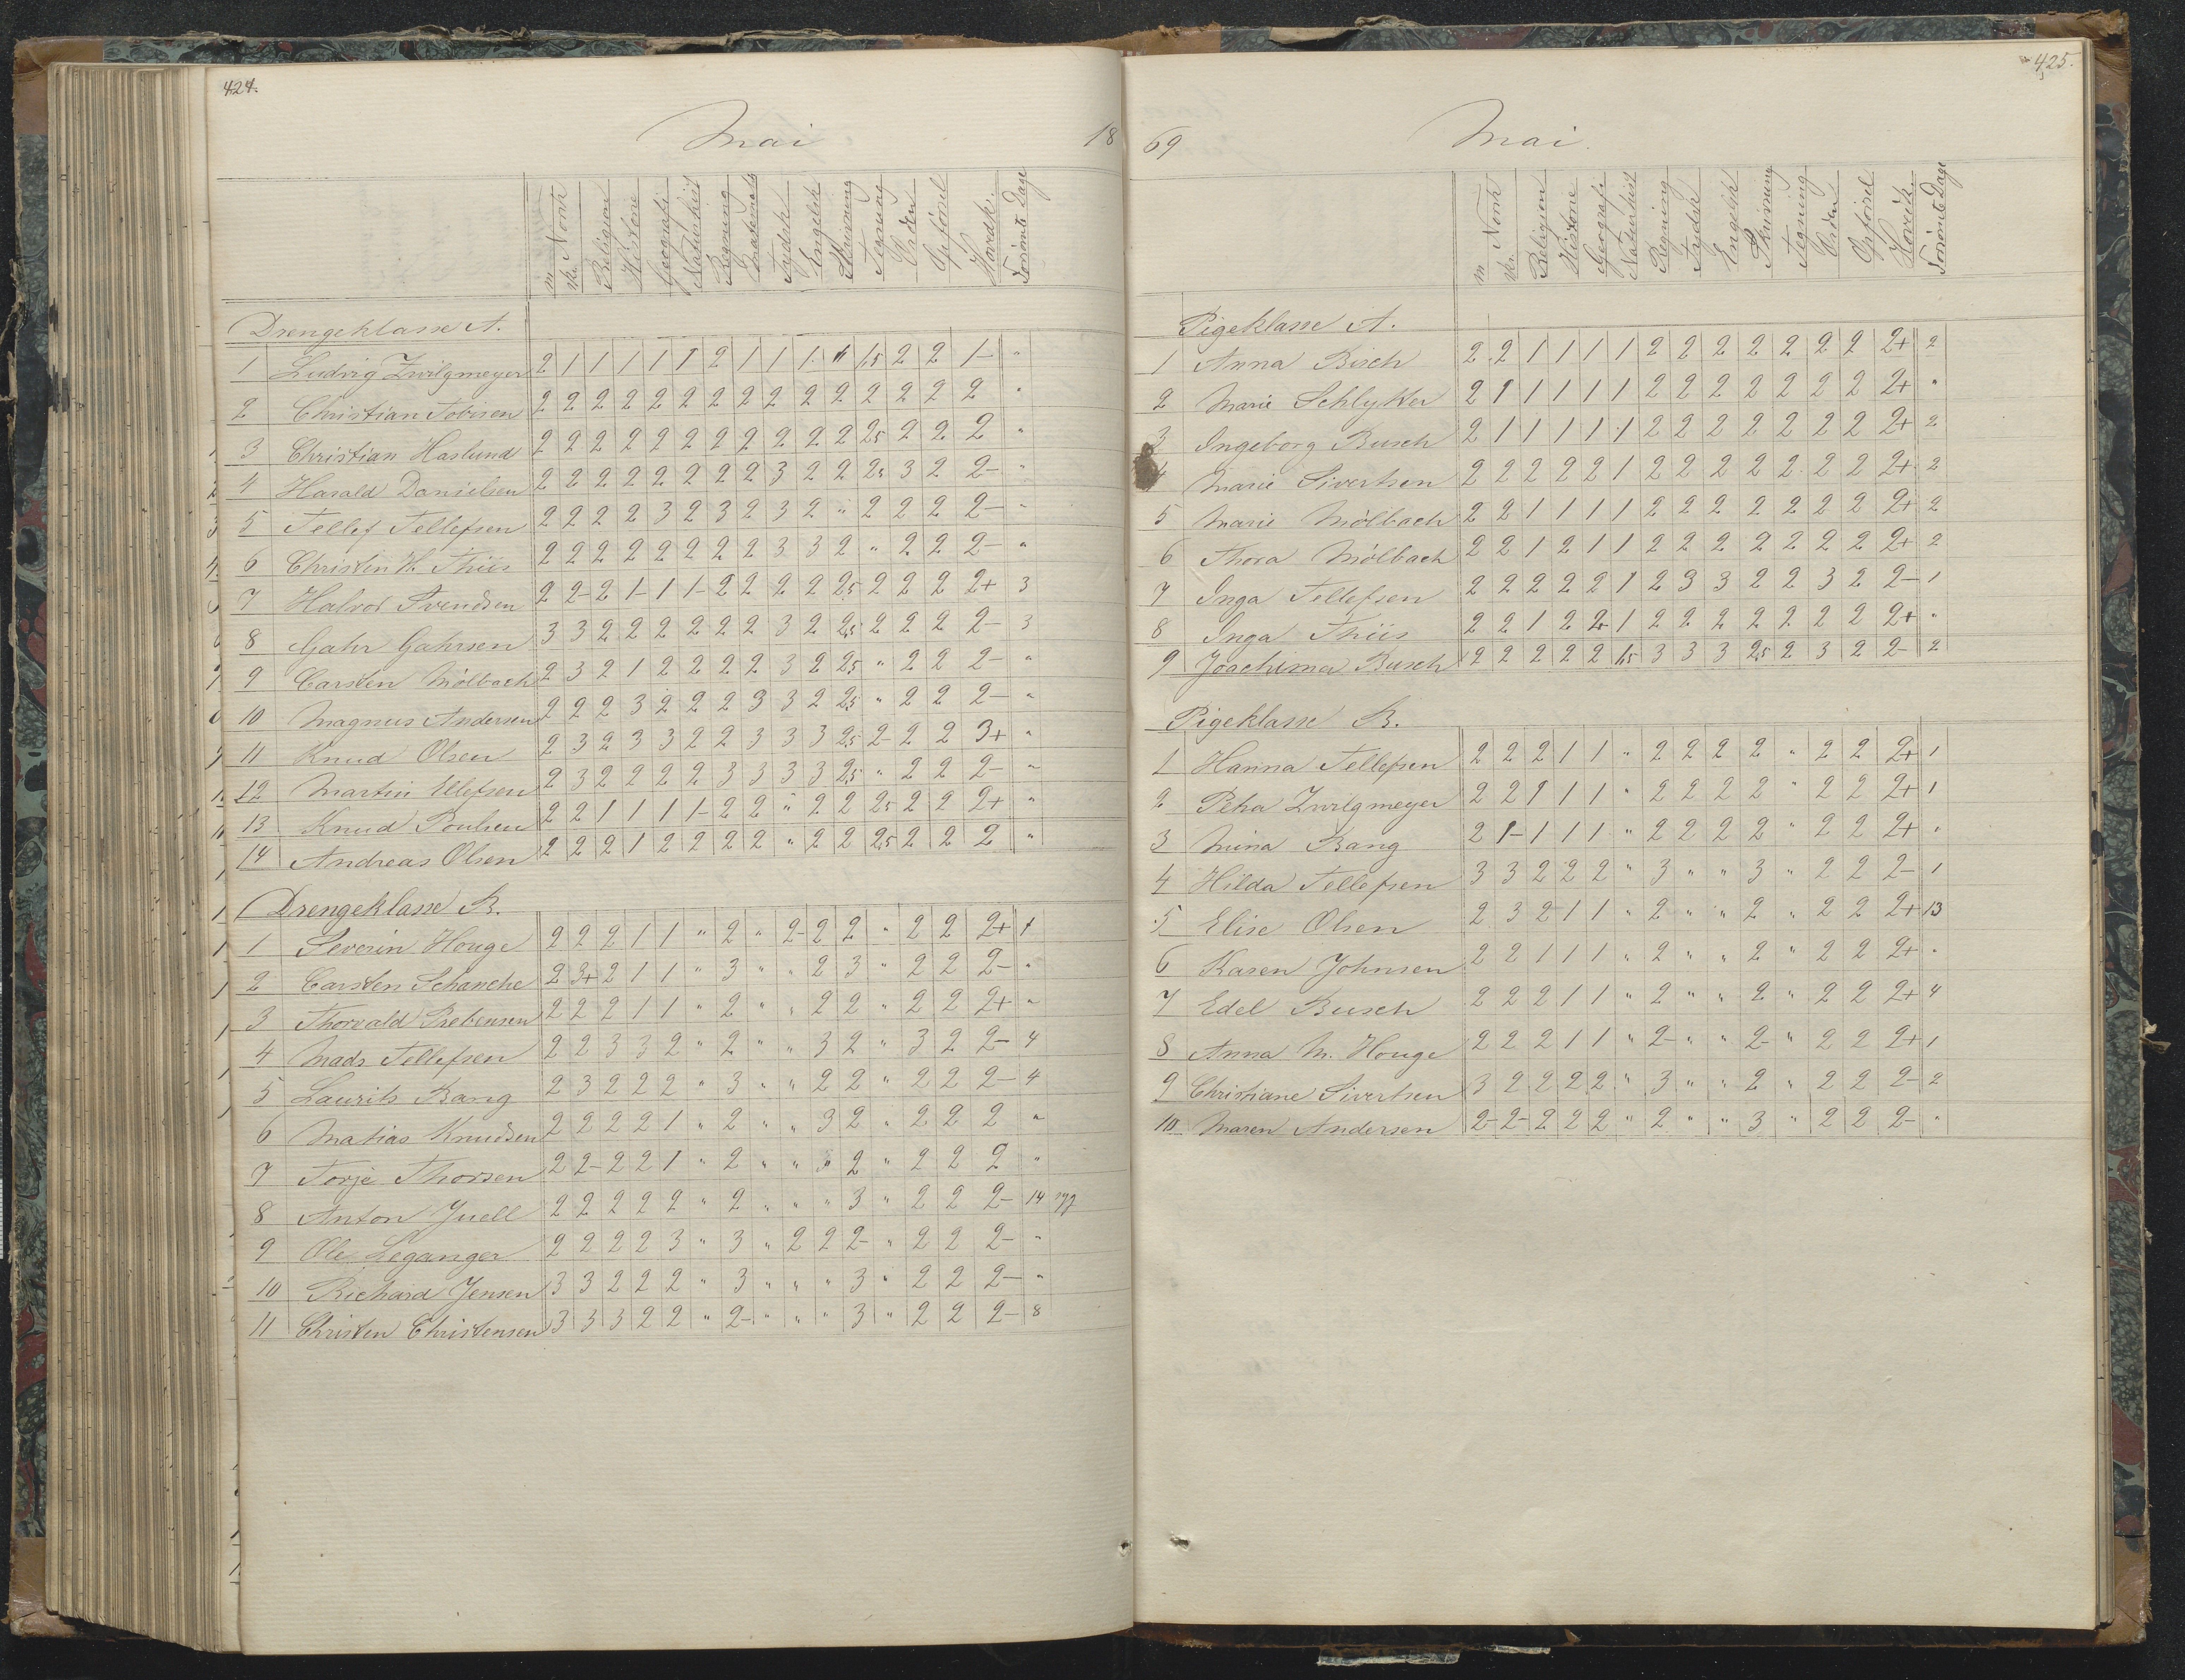 424.
Mai 18
m. Norsk skr. Religion Historie Geografi Naturhist Regning Mathemat Tydsk Engelsk Skrivning Tegning Orden Opførsel Hovedk. Forsømte Dage
Drengeklasse A.
1 Ludvig Zwilgmeyer 2 1 1 1 1 1 2 1 1 1 1 1,5 2 2 1- "
2 Christian Tobisen 2 2 2 2 2 2 2 2 2 2 2 2 2 2 2 "
3 Christian Haslund 2 2 2 2 2 2 2 2 2 2 2 2,5 2 2 2 "
4 Harald Danielsen 2 2 2 2 2 2 2 2 3 2 2 2,5 3 2 2- "
5 Tellef Tellefsen 2 2 2 2 3 2 3 2 3 2 " 2 2 2 2- "
6 Christen H. Thiis 2 2 2 2 2 2 2 2 3 3 2 " 2 2 2- "
7 Halvor Svendsen 2 2- 2 1- 1 1- 2 2 2 2 2,5 2 2 2 2+ 3
8 Gahr Gahrsen 3 3 2 2 2 2 2 2 3 2 2,5 2 2 2 2- 3
9 Carsten Mölbach 2 3 2 1 2 2 2 2 3 2 2,5 " 2 2 2- "
10 Magnus Andersen 2 2 2 3 2 2 2 3 3 2 2,5 " 2 2 2- "
11 Knud Olsen 2 3 2 3 3 2 2 3 3 3 2,5 2- 2 2 3+ "
12 Martin Ellefsen 2 3 2 2 2 2 3 3 3 3 2,5 " 2 2 2- "
13 Knud Poulsen 2 2 1 1 1 1- 2 2 " 2 2 2,5 2 2 2+ "
14 Andreas Olsen 2 2 2 1 2 2 2 2 " 2 2 2,5 2 2 2 "
Drengeklasse B.
1 Severin Houge 2 2 2 1 1 " 2 " 2- 2 2 " 2 2 2+ 1
2 Carsten Schanche 2 3+ 2 1 1 " 3 " " 2 3 " 2 2 2- "
3 Thorvald Prebensen 2 2 2 1 1 " 2 " " 2 2 " 2 2 2+ "
4 Mads Tellefsen 2 2 3 3 2 " 2 " " 3 2 " 3 2 2- 4
5 Laurits Bang 2 3 2 2 2 " 3 " " 2 2 " 2 2 2- 4
6 Matias Knudsen 2 2 2 2 1 " 2 " " 3 2 " 2 2 2 "
7 Torje Thorsen 2 2- 2 2 1 " 2 " " " 2 " 2 2 2 "
8 Anton Juell 2 2 2 2 2 " 2 " " " 3 " 2 2 2- 14 syg
9 Ole Leganger 2 2 2 2 3 " 3 " 2 2 2- " 2 2 2- "
10 Richard Jensen 3 3 2 2 2 " 3 " " " 3 " 2 2 2- "
11 Christen Christensen 3 3 3 2 2 " 2- " " " 3 " 2 2 2- 8
425.
69 Mai.
m. Norsk skr. Religion Historie Geografi Naturhist Regning Tydsk Engelsk Skrivning Tegning Orden Opførsel Hovedk. Forsømte Dage
Pigeklasse A.
1 Anna Bisch 2 2 1 1 1 1 2 2 2 2 2 2 2 2+ 2
2 Marie Schlytter 2 1 1 1 1 1 2 2 2 2 2 2 2 2+ "
3 Ingeborg Busch 2 1 1 1 1 1 2 2 2 2 2 2 2 2+ 2
4 Marie Sivertsen 2 2 2 2 2 1 2 2 2 2 2 2 2 2+ 2
5 Marie Mölbach 2 2 1 1 1 1 2 2 2 2 2 2 2 2+ 2
6 Thora Mölbach 2 2 1 2 1 1 2 2 2 2 2 2 2 2+ 2
7 Inga Tellefsen 2 2 2 2 2 1 2 3 3 2 2 3 2 2- 1
8 Inga Thiis 2 2 1 2 2+ 1 2 2 2 2 2 2 2 2+ "
9 Joachima Busch 2 2 2 2 2 1,5 3 3 3 2,5 2 3 2 2- 2
Pigeklasse B.
1 Hanna Tellefsen 2 2 2 1 1 " 2 2 2 2 " 2 2 2+ 1
2 Petra Zwilgmeyer 2 2 1 1 1 " 2 2 2 2 " 2 2 2+ 1
3 Mina Bang 2 1- 1 1 1 " 2 2 2 2 " 2 2 2+ "
4 Hilda Tellefsen 3 3 2 2 2 " 3 " " 3 " 2 2 2- 1
5 Elise Olsen 2 3 2 1 1 " 2 " " 2 " 2 2 2+ 13
6 Karen Johnsen 2 2 1 1 1 " 2 " " 2 " 2 2 2+ "
7 Edel Busch 2 2 2 1 1 " 2 " " 2 " 2 2 2+ 4
8 Anna M. Houge 2 2 2 1 1 " 2- " " 2- " 2 2 2+ 1
9 Christiane Sivertsen 3 2 2 2 2 " 3 " " 2 " 2 2 2- 2
10 Maren Andersen 2- 2- 2 2 2 " 2 " " 3 " 2 2 2- "